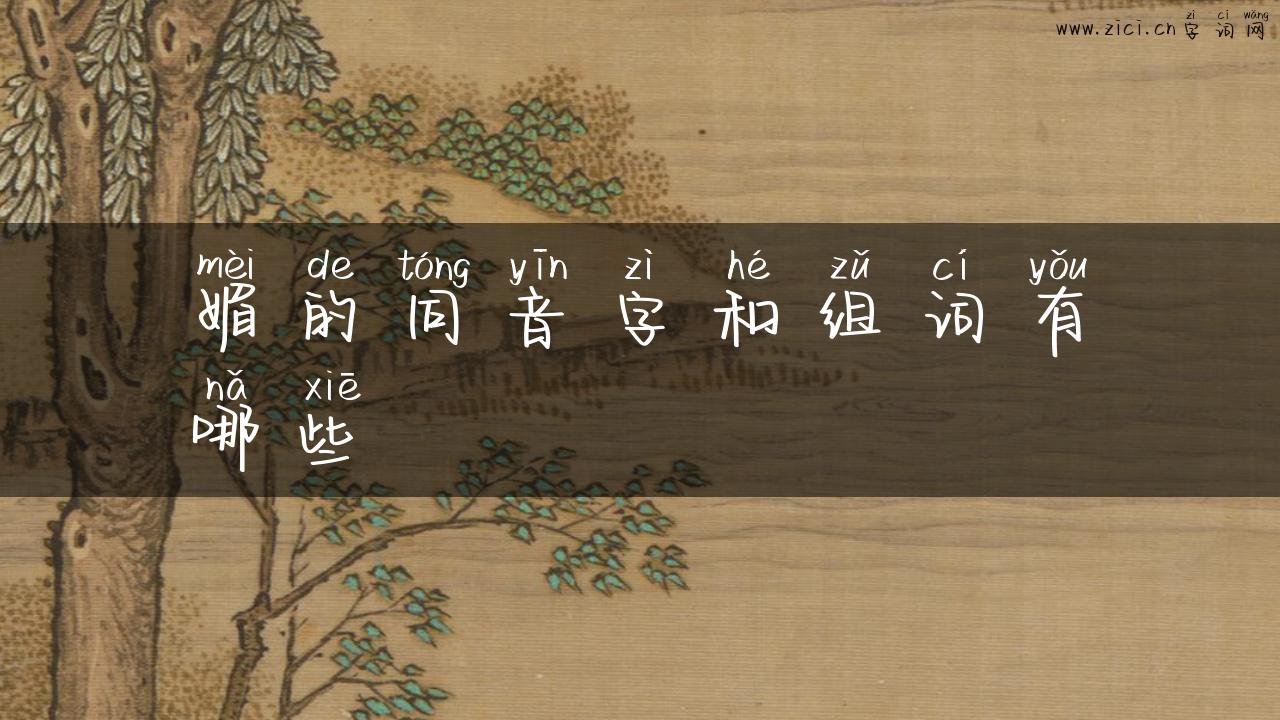 zì cí wǎng
www.zici.cn 字词网
mèi de tóng yīn zì hé zǔ cí yǒu
媚的同音字和组词有
nǎ xiē
哪些